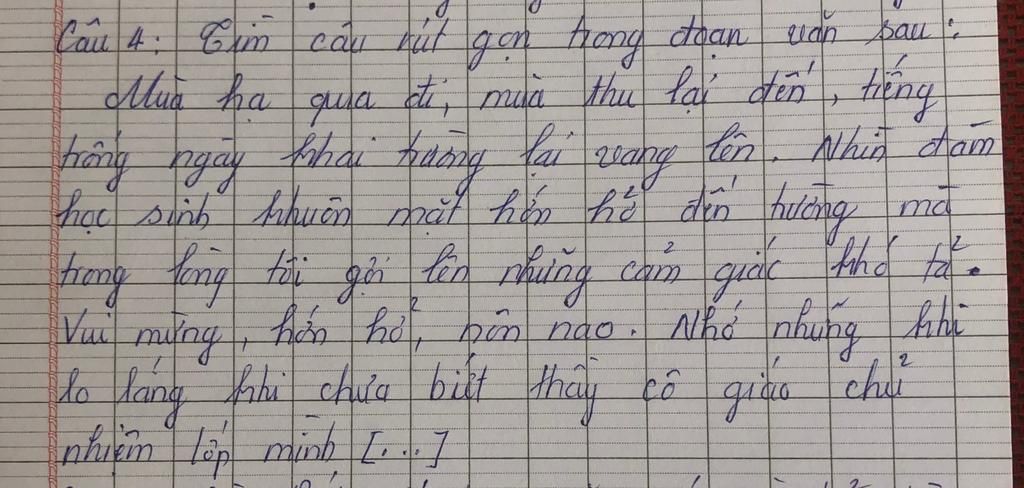 Câu 4: Tìm câu rút gọn trong đoạn văn sau:
Mùa hạ qua đi, mùa thu lại đến, tiếng
trống ngày khai trường lại vang lên. Nhìn đám
học sinh khuôn mặt hớn hở đến trường mà
trong lòng tôi gợi lên những cảm giác khó tả.
Vui mừng, hớn hở, nôn nao. Nhớ những khi
lo lắng khi chưa biết thầy cô giáo chủ
nhiệm lớp mình [...]